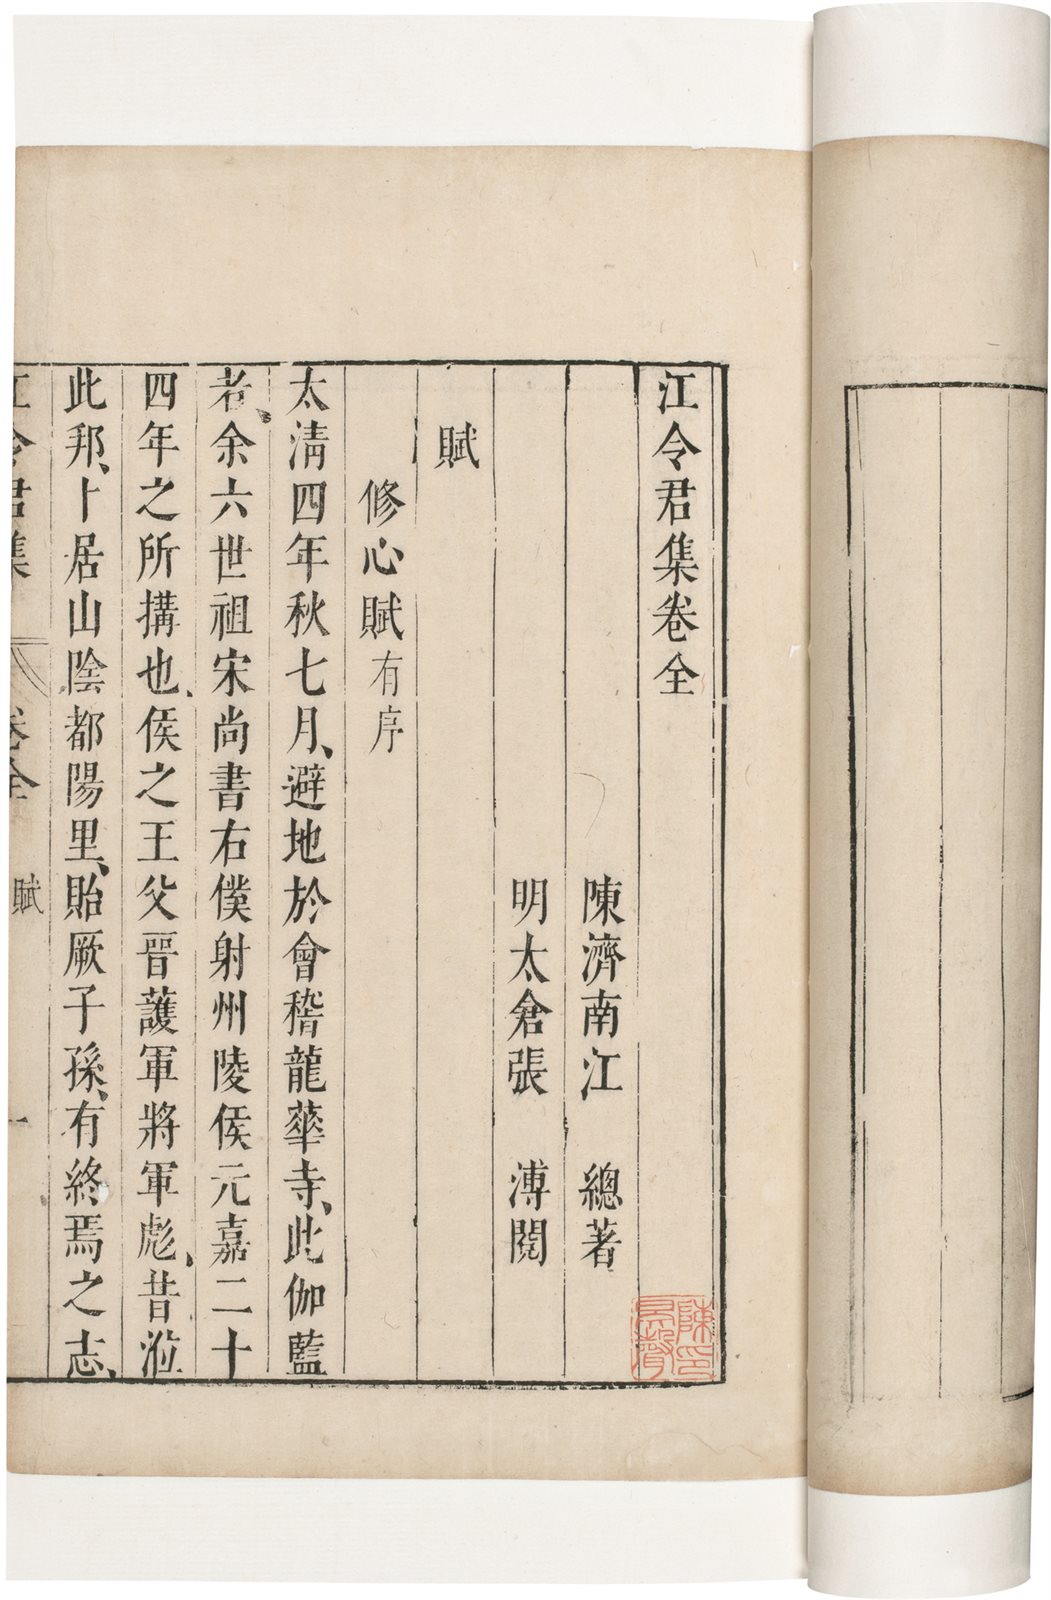 江令君集卷全
陳濟南江　總著
明太倉張　溥閱
賦
修心賦有序
太淸四年秋七月、避地於會稽龍華寺、此伽藍
者、余六世祖宋尚書右僕射州陵侯元嘉二十
四年之所搆也、侯之王父晉護軍將軍彪、昔涖
此邦、卜居山陰都陽里、貽厥子孫、有終焉之志、
江令君集　卷全　賦　一